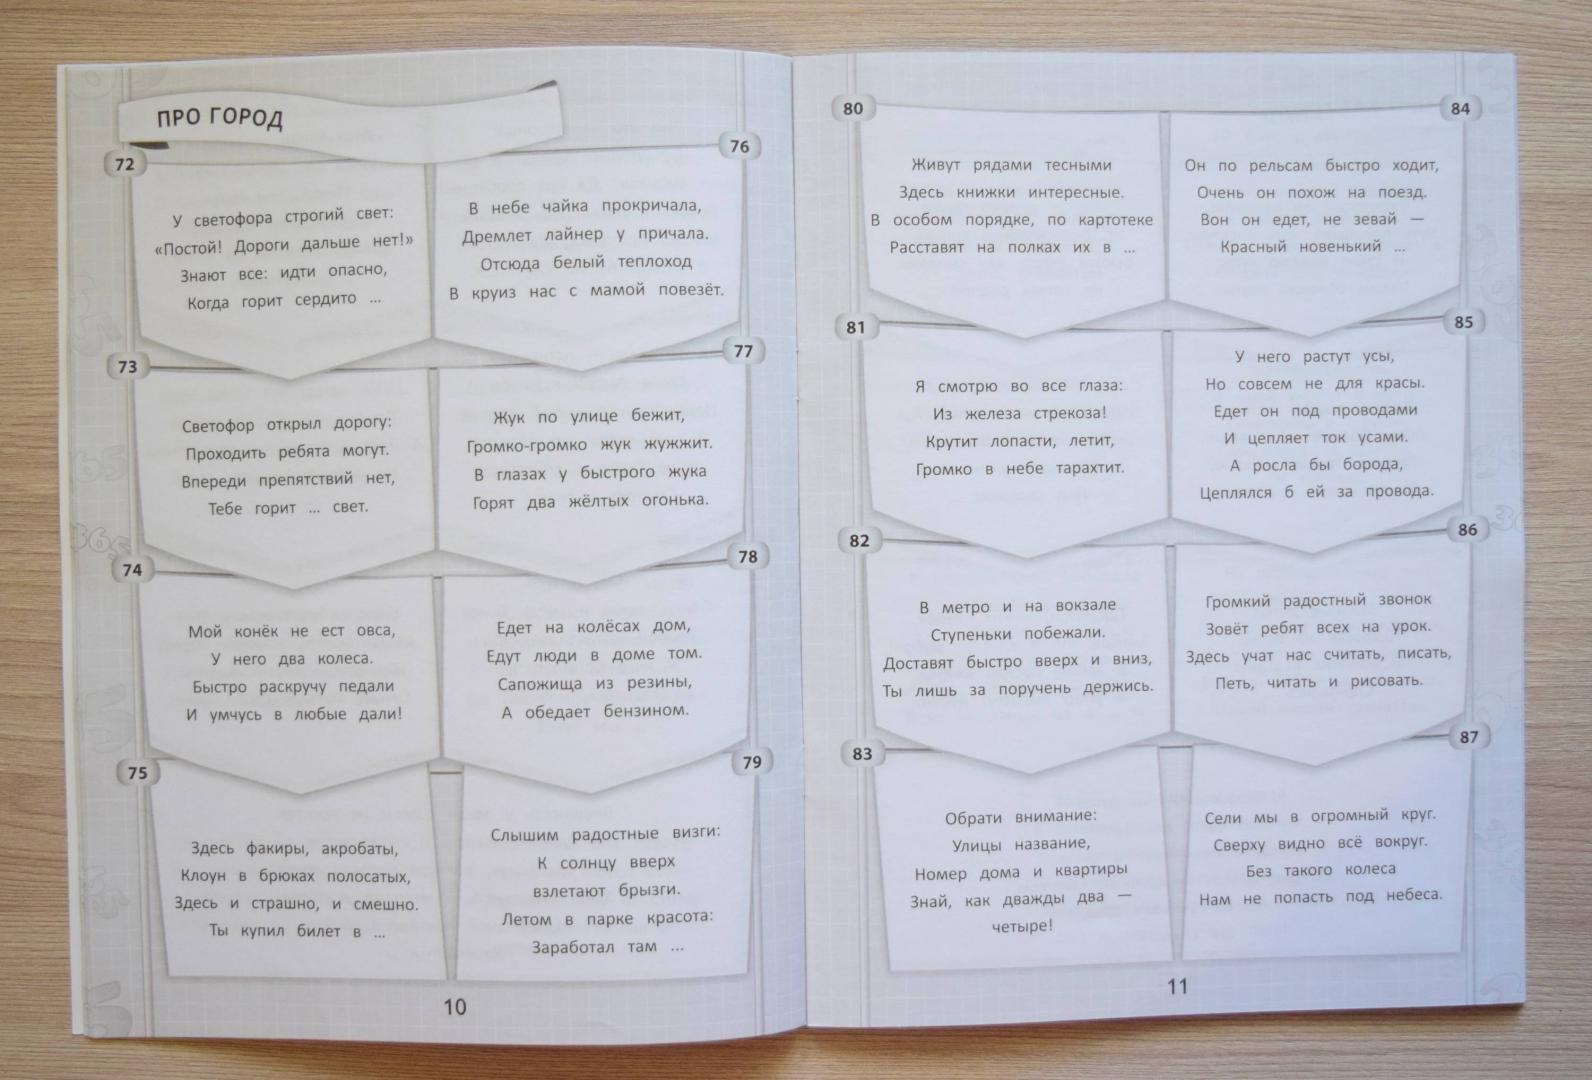 ПРО ГОРОД
72
У светофора строгий свет:
«Постой! Дороги дальше нет!»
Знают все: идти опасно,
Когда горит сердито ...
73
Светофор открыл дорогу:
Проходить ребята могут.
Впереди препятствий нет,
Тебе горит ... свет.
74
Мой конёк не ест овса,
У него два колеса.
Быстро раскручу педали
И умчусь в любые дали!
75
Здесь факиры, акробаты,
Клоун в брюках полосатых,
Здесь и страшно, и смешно.
Ты купил билет в ...
76
В небе чайка прокричала,
Дремлет лайнер у причала.
Отсюда белый теплоход
В круиз нас с мамой повезёт.
77
Жук по улице бежит,
Громко-громко жук жужжит.
В глазах у быстрого жука
Горят два жёлтых огонька.
78
Едет на колёсах дом,
Едут люди в доме том.
Сапожища из резины,
А обедает бензином.
79
Слышим радостные визги:
К солнцу вверх
взлетают брызги.
Летом в парке красота:
Заработал там ...
10
80
Живут рядами тесными
Здесь книжки интересные.
В особом порядке, по картотеке
Расставят на полках их в ...
81
Я смотрю во все глаза:
Из железа стрекоза!
Крутит лопасти, летит,
Громко в небе тарахтит.
82
В метро и на вокзале
Ступеньки побежали.
Доставят быстро вверх и вниз,
Ты лишь за поручень держись.
83
Обрати внимание:
Улицы название,
Номер дома и квартиры
Знай, как дважды два —
четыре!
84
Он по рельсам быстро ходит,
Очень он похож на поезд.
Вон он едет, не зевай —
Красный новенький ...
85
У него растут усы,
Но совсем не для красы.
Едет он под проводами
И цепляет ток усами.
А росла бы борода,
Цеплялся б ей за провода.
86
Громкий радостный звонок
Зовёт ребят всех на урок.
Здесь учат нас считать, писать,
Петь, читать и рисовать.
87
Сели мы в огромный круг.
Сверху видно всё вокруг.
Без такого колеса
Нам не попасть под небеса.
11